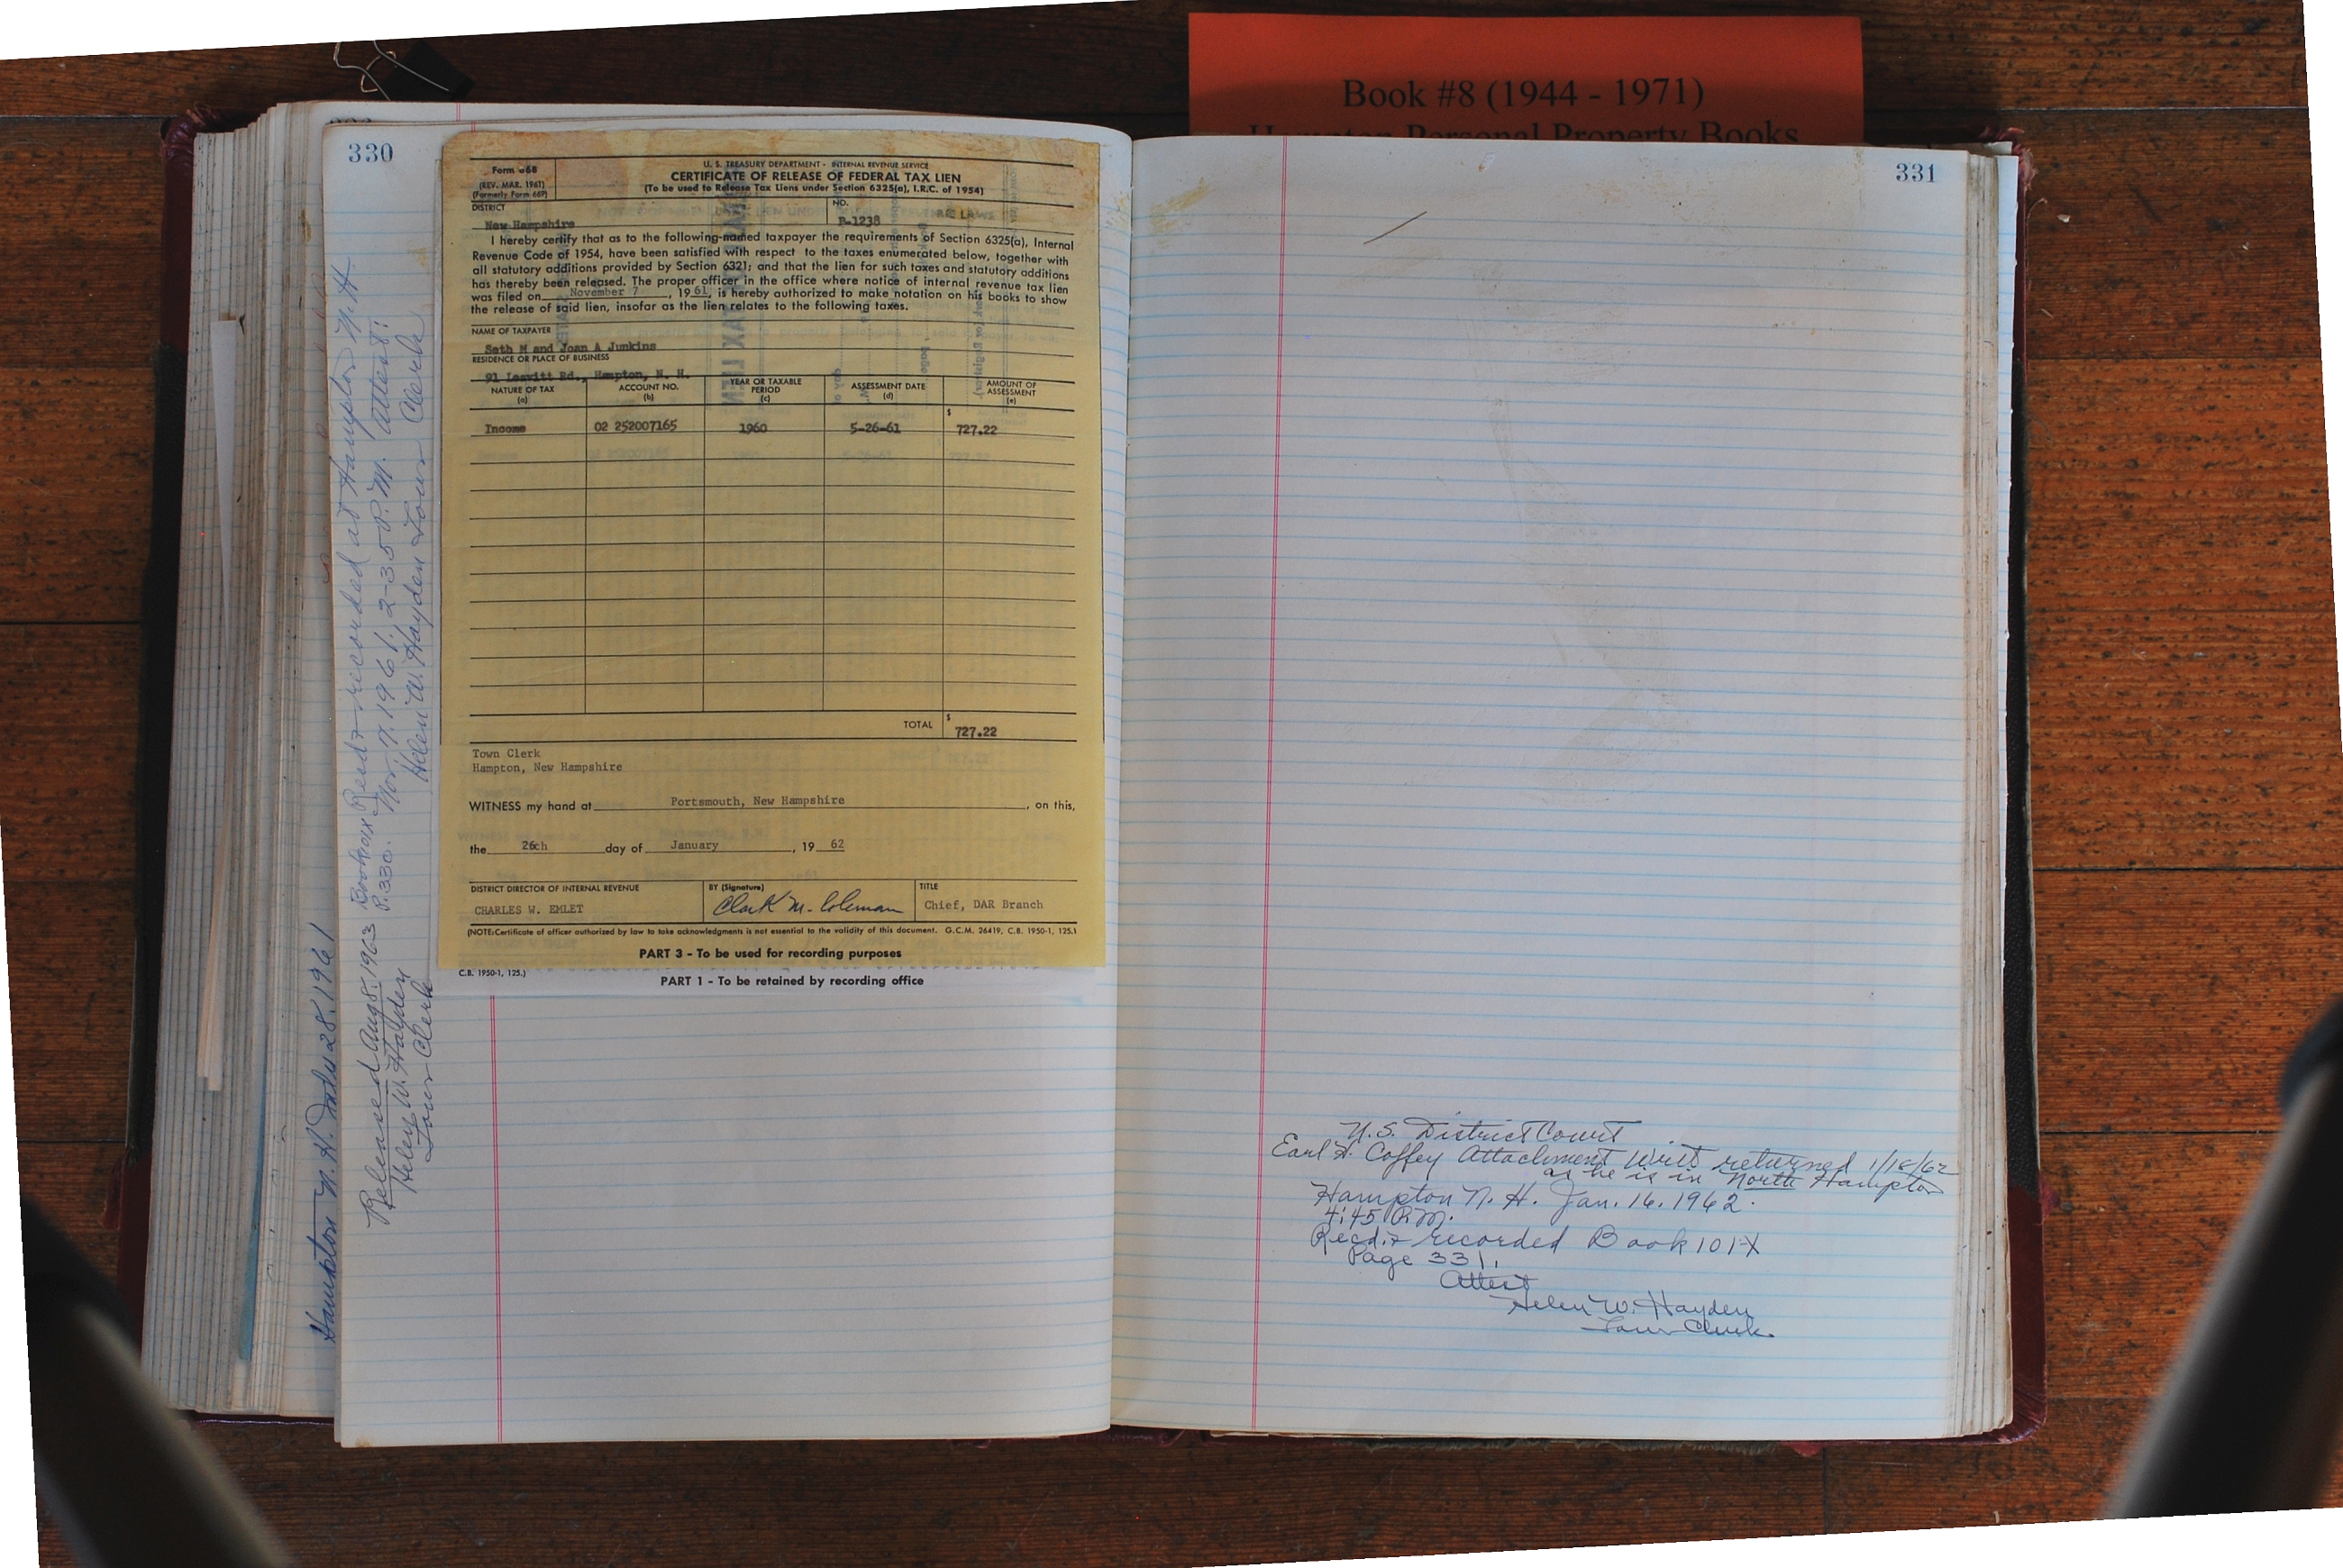 Book #8 (1944 - 1971)
Hampton Personal Property Books
330
Form 668
(REV. MAR. 1961)
(Formerly Form 669)
U. S. TREASURY DEPARTMENT - INTERNAL REVENUE SERVICE
CERTIFICATE OF RELEASE OF FEDERAL TAX LIEN
(To be used to Release Tax Liens under Section 6325(a), I.R.C. of 1954)
DISTRICT
New Hampshire
NO.
P-1238
I hereby certify that as to the following-named taxpayer the requirements of Section 6325(a), Internal
Revenue Code of 1954, have been satisfied with respect to the taxes enumerated below, together with
all statutory additions provided by Section 6321; and that the lien for such taxes and statutory additions
has thereby been released. The proper officer in the office where notice of internal revenue tax lien
was filed on November 7, 1961, is hereby authorized to make notation on his books to show
the release of said lien, insofar as the lien relates to the following taxes.
NAME OF TAXPAYER
Seth M and Joan A Junkins
RESIDENCE OR PLACE OF BUSINESS
91 Leavitt Rd., Hampton, N. H.
NATURE OF TAX (a) ACCOUNT NO. (b) YEAR OR TAXABLE PERIOD (c) ASSESSMENT DATE (d) AMOUNT OF ASSESSMENT (e)
Income 02 252007165 1960 5-26-61 $ 727.22
TOTAL $ 727.22
Town Clerk
Hampton, New Hampshire
WITNESS my hand at Portsmouth, New Hampshire, on this,
the 26th day of January, 19 62
DISTRICT DIRECTOR OF INTERNAL REVENUE
CHARLES W. EMLET
BY (Signature)
Clark M. Coleman
TITLE
Chief, DAR Branch
(NOTE: Certificate of officer authorized by law to take acknowledgments is not essential to the validity of this document. G.C.M. 26419, C.B. 1950-1, 125.)
PART 3 - To be used for recording purposes
C.B. 1950-1, 125.)
PART 1 - To be retained by recording office
Hampton N.H. July 28, 1961
Recd & recorded at Hampton N.H.
P.330. Nov. 7. 1961, 2-35 P.M. Attest:
Helen W. Hayden Town Clerk
Released Aug 8, 1963
Helen W. Hayden
Town Clerk
331
U.S. District Court
Earl H. Coffey Attachment Writ returned 1/18/62
as he is in North Hampton
Hampton N. H. Jan. 16. 1962.
4:45 P.M.
Recd. & recorded Book 101-X
Page 331.
Attest
Helen W. Hayden
Town Clerk.